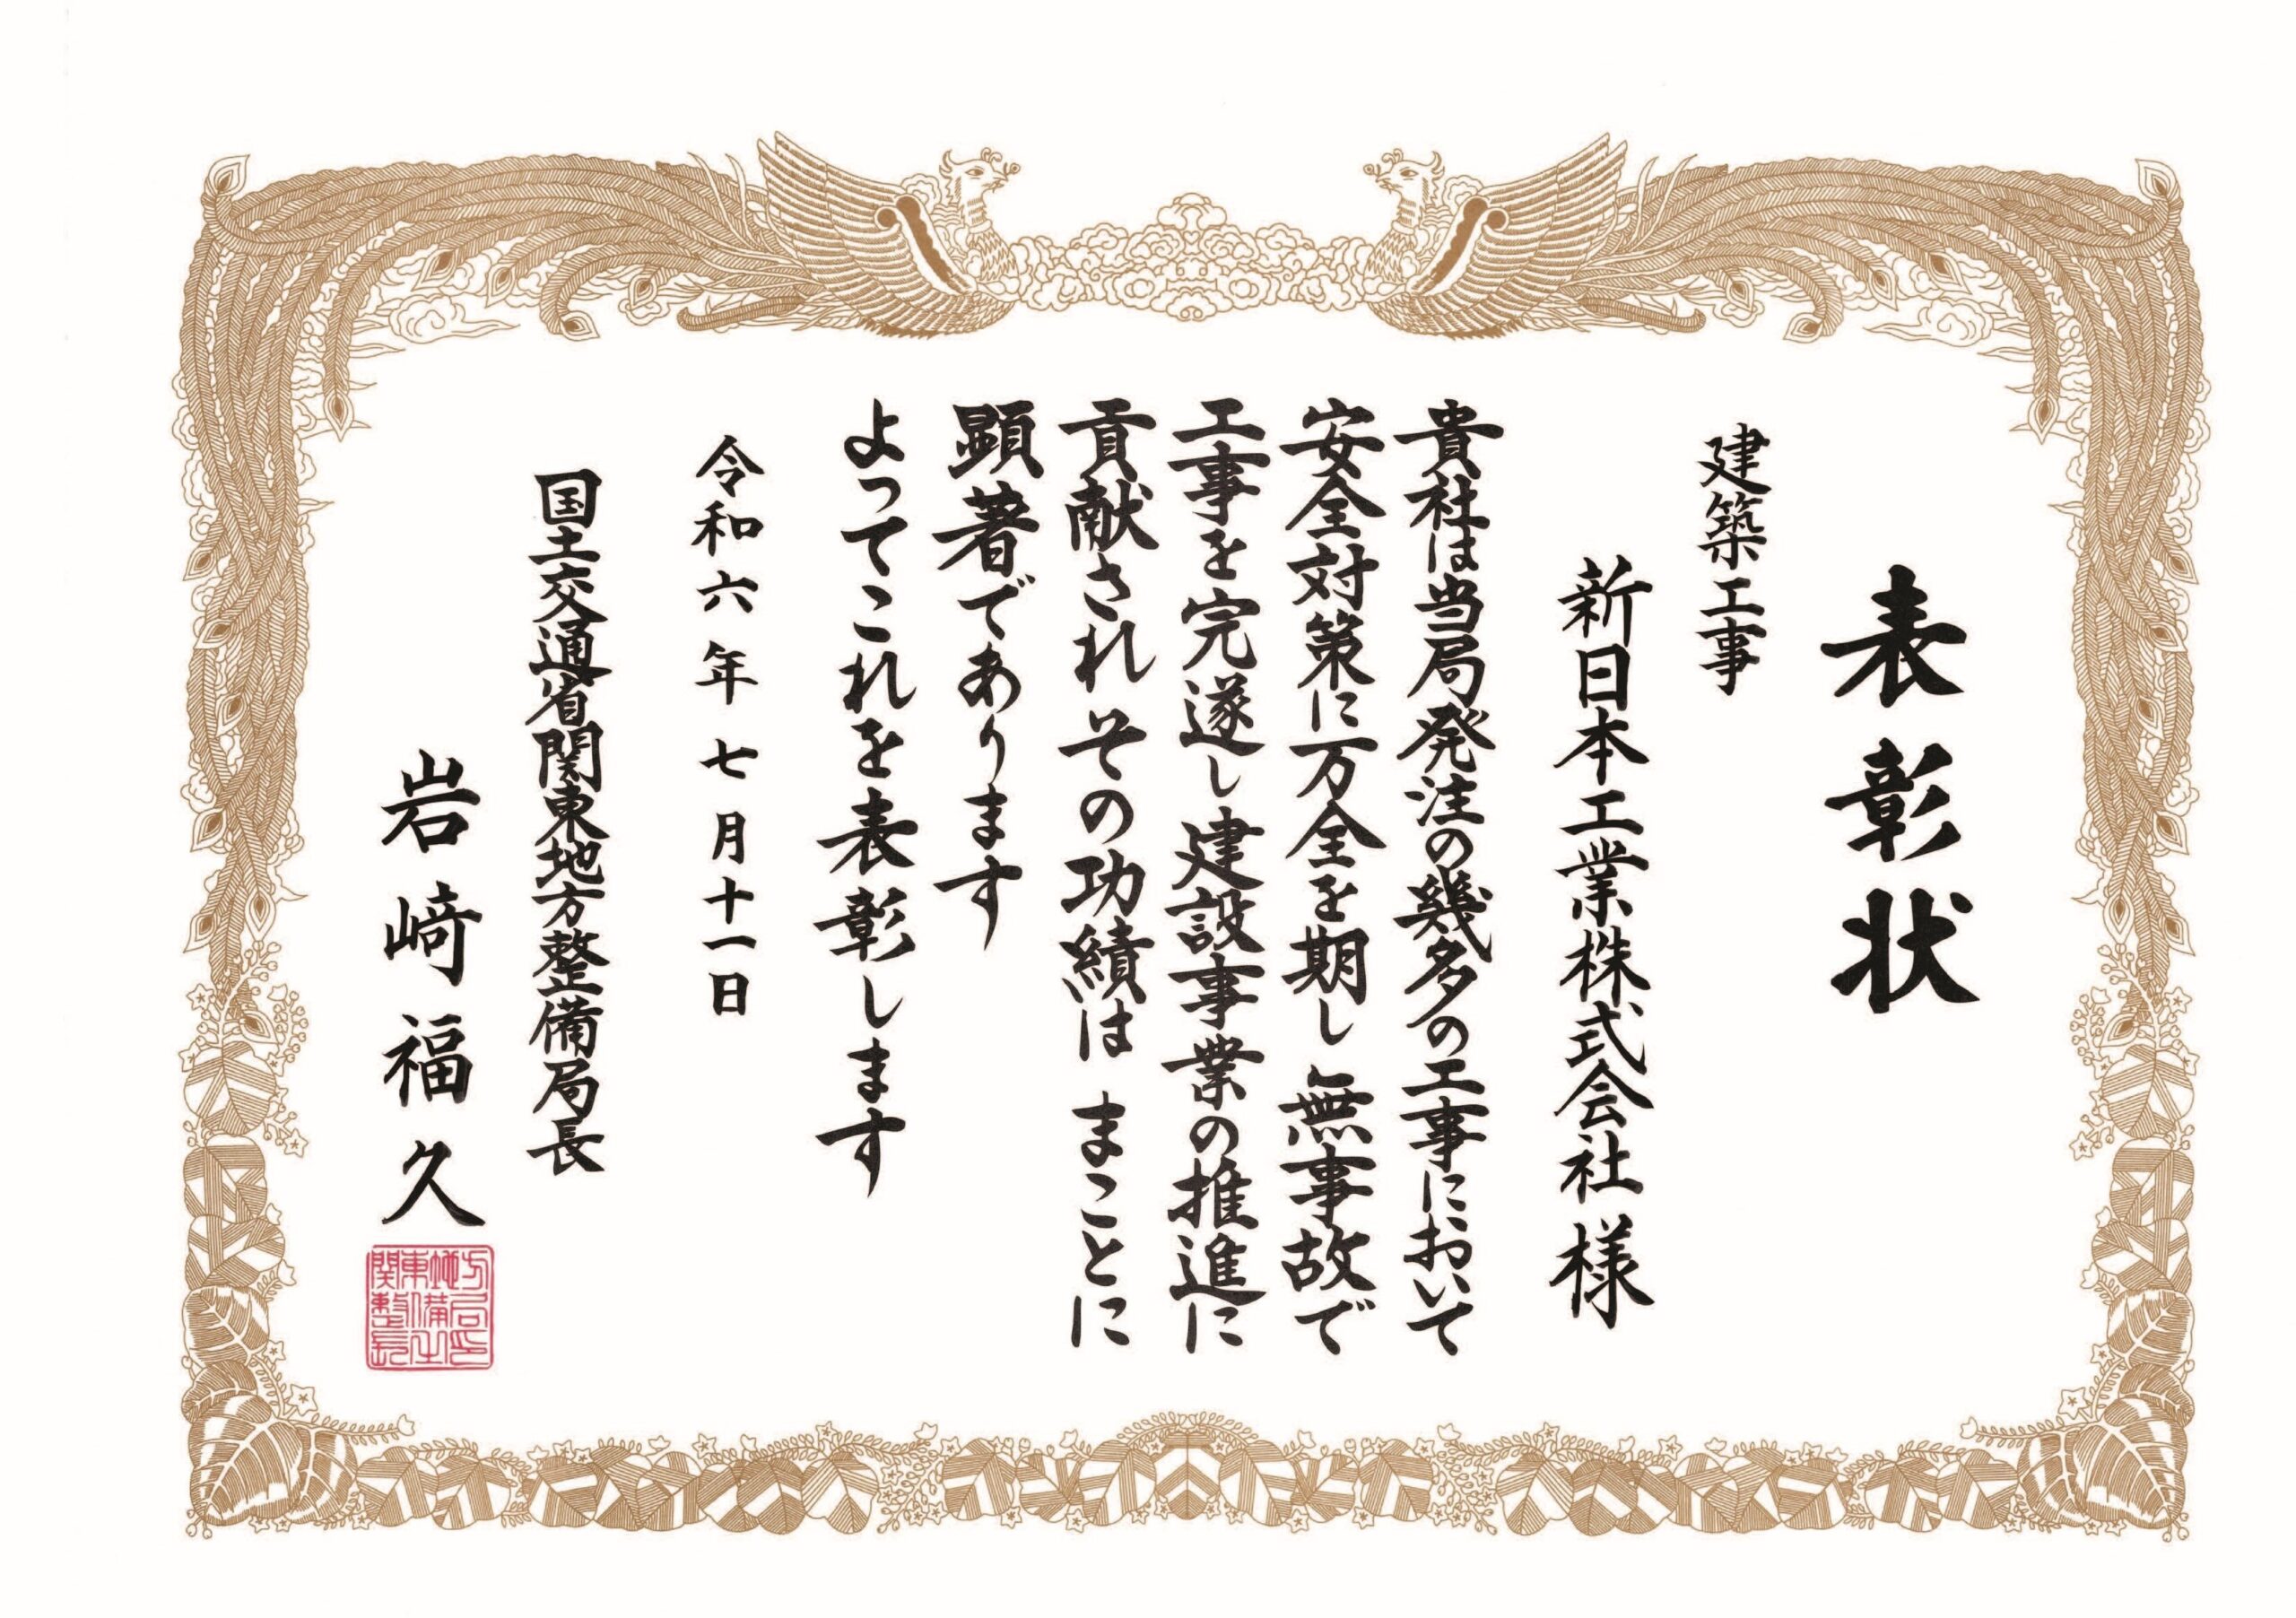 表彰状
建築工事
新日本工業株式会社様
貴社は当局発注の幾多の工事において
安全対策に万全を期し 無事故で
工事を完遂し 建設事業の推進に
貢献され その功績は まことに
顕著であります
よってこれを表彰します
令和六年七月十一日
国土交通省関東地方整備局長
岩崎福久
関東地方整備局長之印